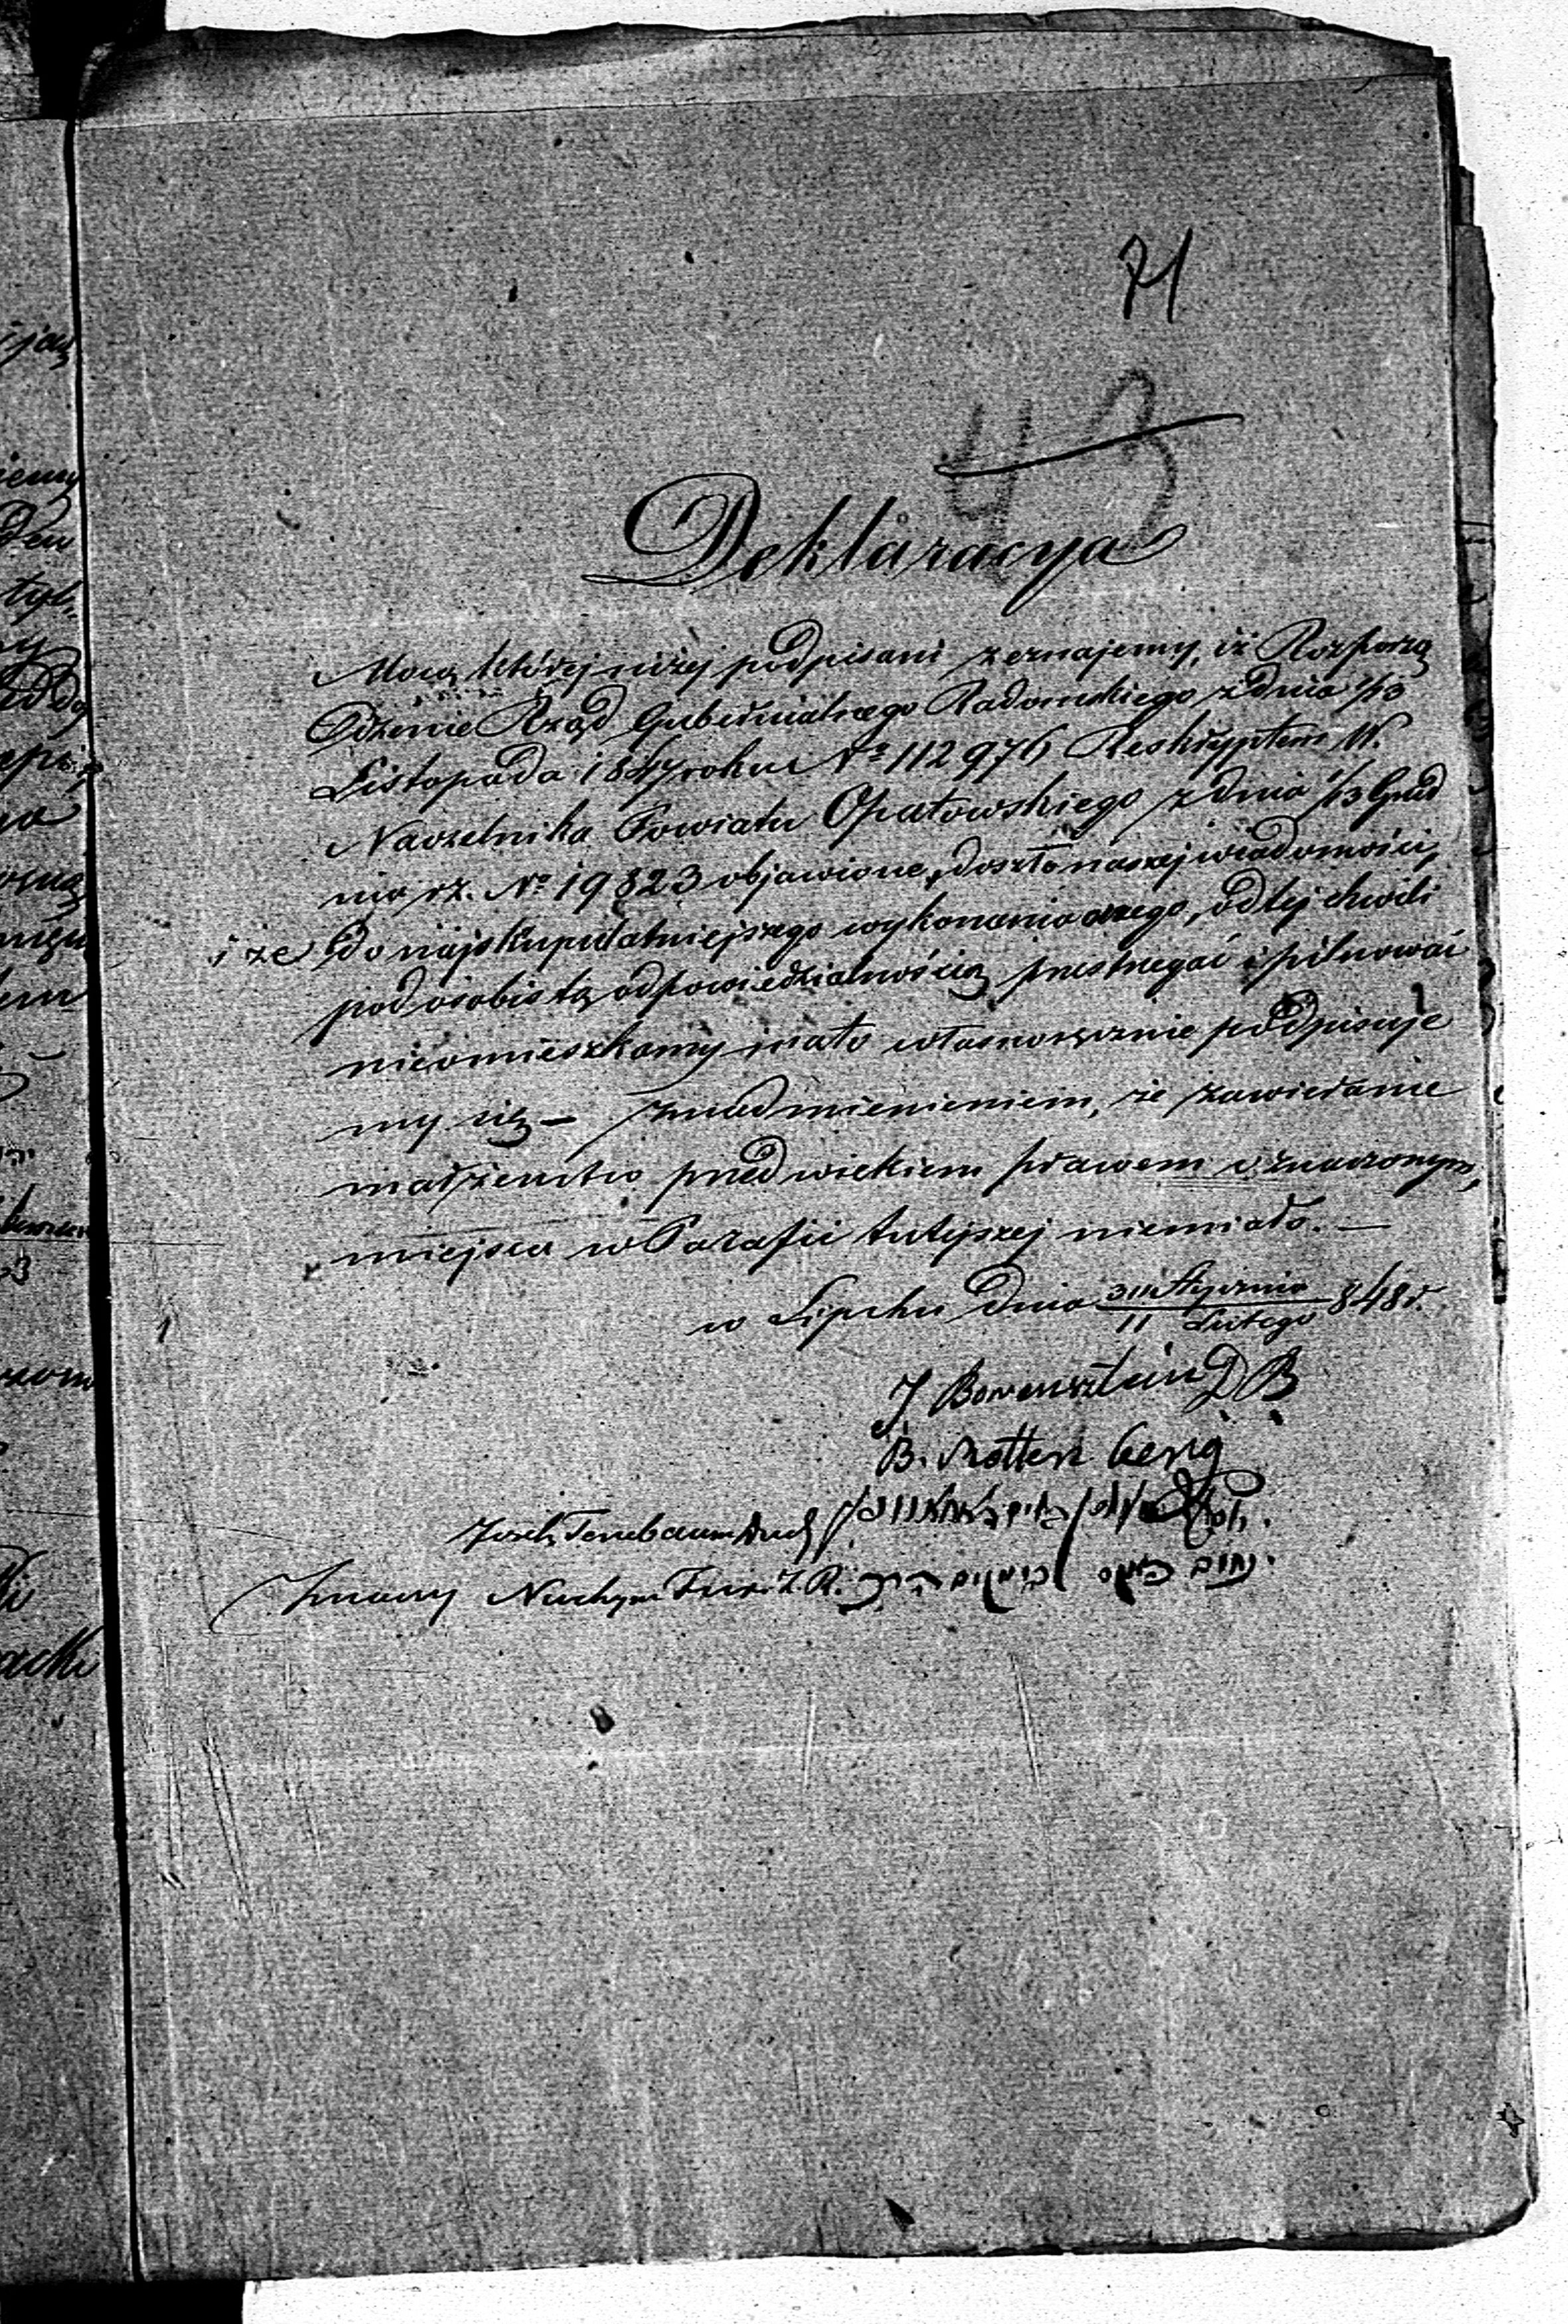 71
43
Deklaracya
Mocą której niżej podpisani zeznajemy, iż Rozporzą
dzenie Rząd Gubernialnego Radomskiego z dnia 1/13
Listopada 1847 roku No 112976 Reskryptem W.
Naczelnika Powiatu Opatowskiego z dnia 1/13 Grud
nia rz. No 19823 objawione, doszło naszej wiadomości,
i że do najskrupulatniejszego wykonania onego, od tej chwili
pod osobistą odpowiedzialnością przestrzegać i pilnować
nieomieszkamy, na to własnoręcznie podpisuje
my się — z nadmienieniem, że zawieranie
małżeństw przed wiekiem prawem oznaczonym,
miejsca w Parafii tutejszej niemiało. —
w Lipsku dnia 30 Stycznia / 11 Lutego 848 r.
J Borensztein D B
B. Rottenberg
Josek Tenebaum
Znaczy Nuchym